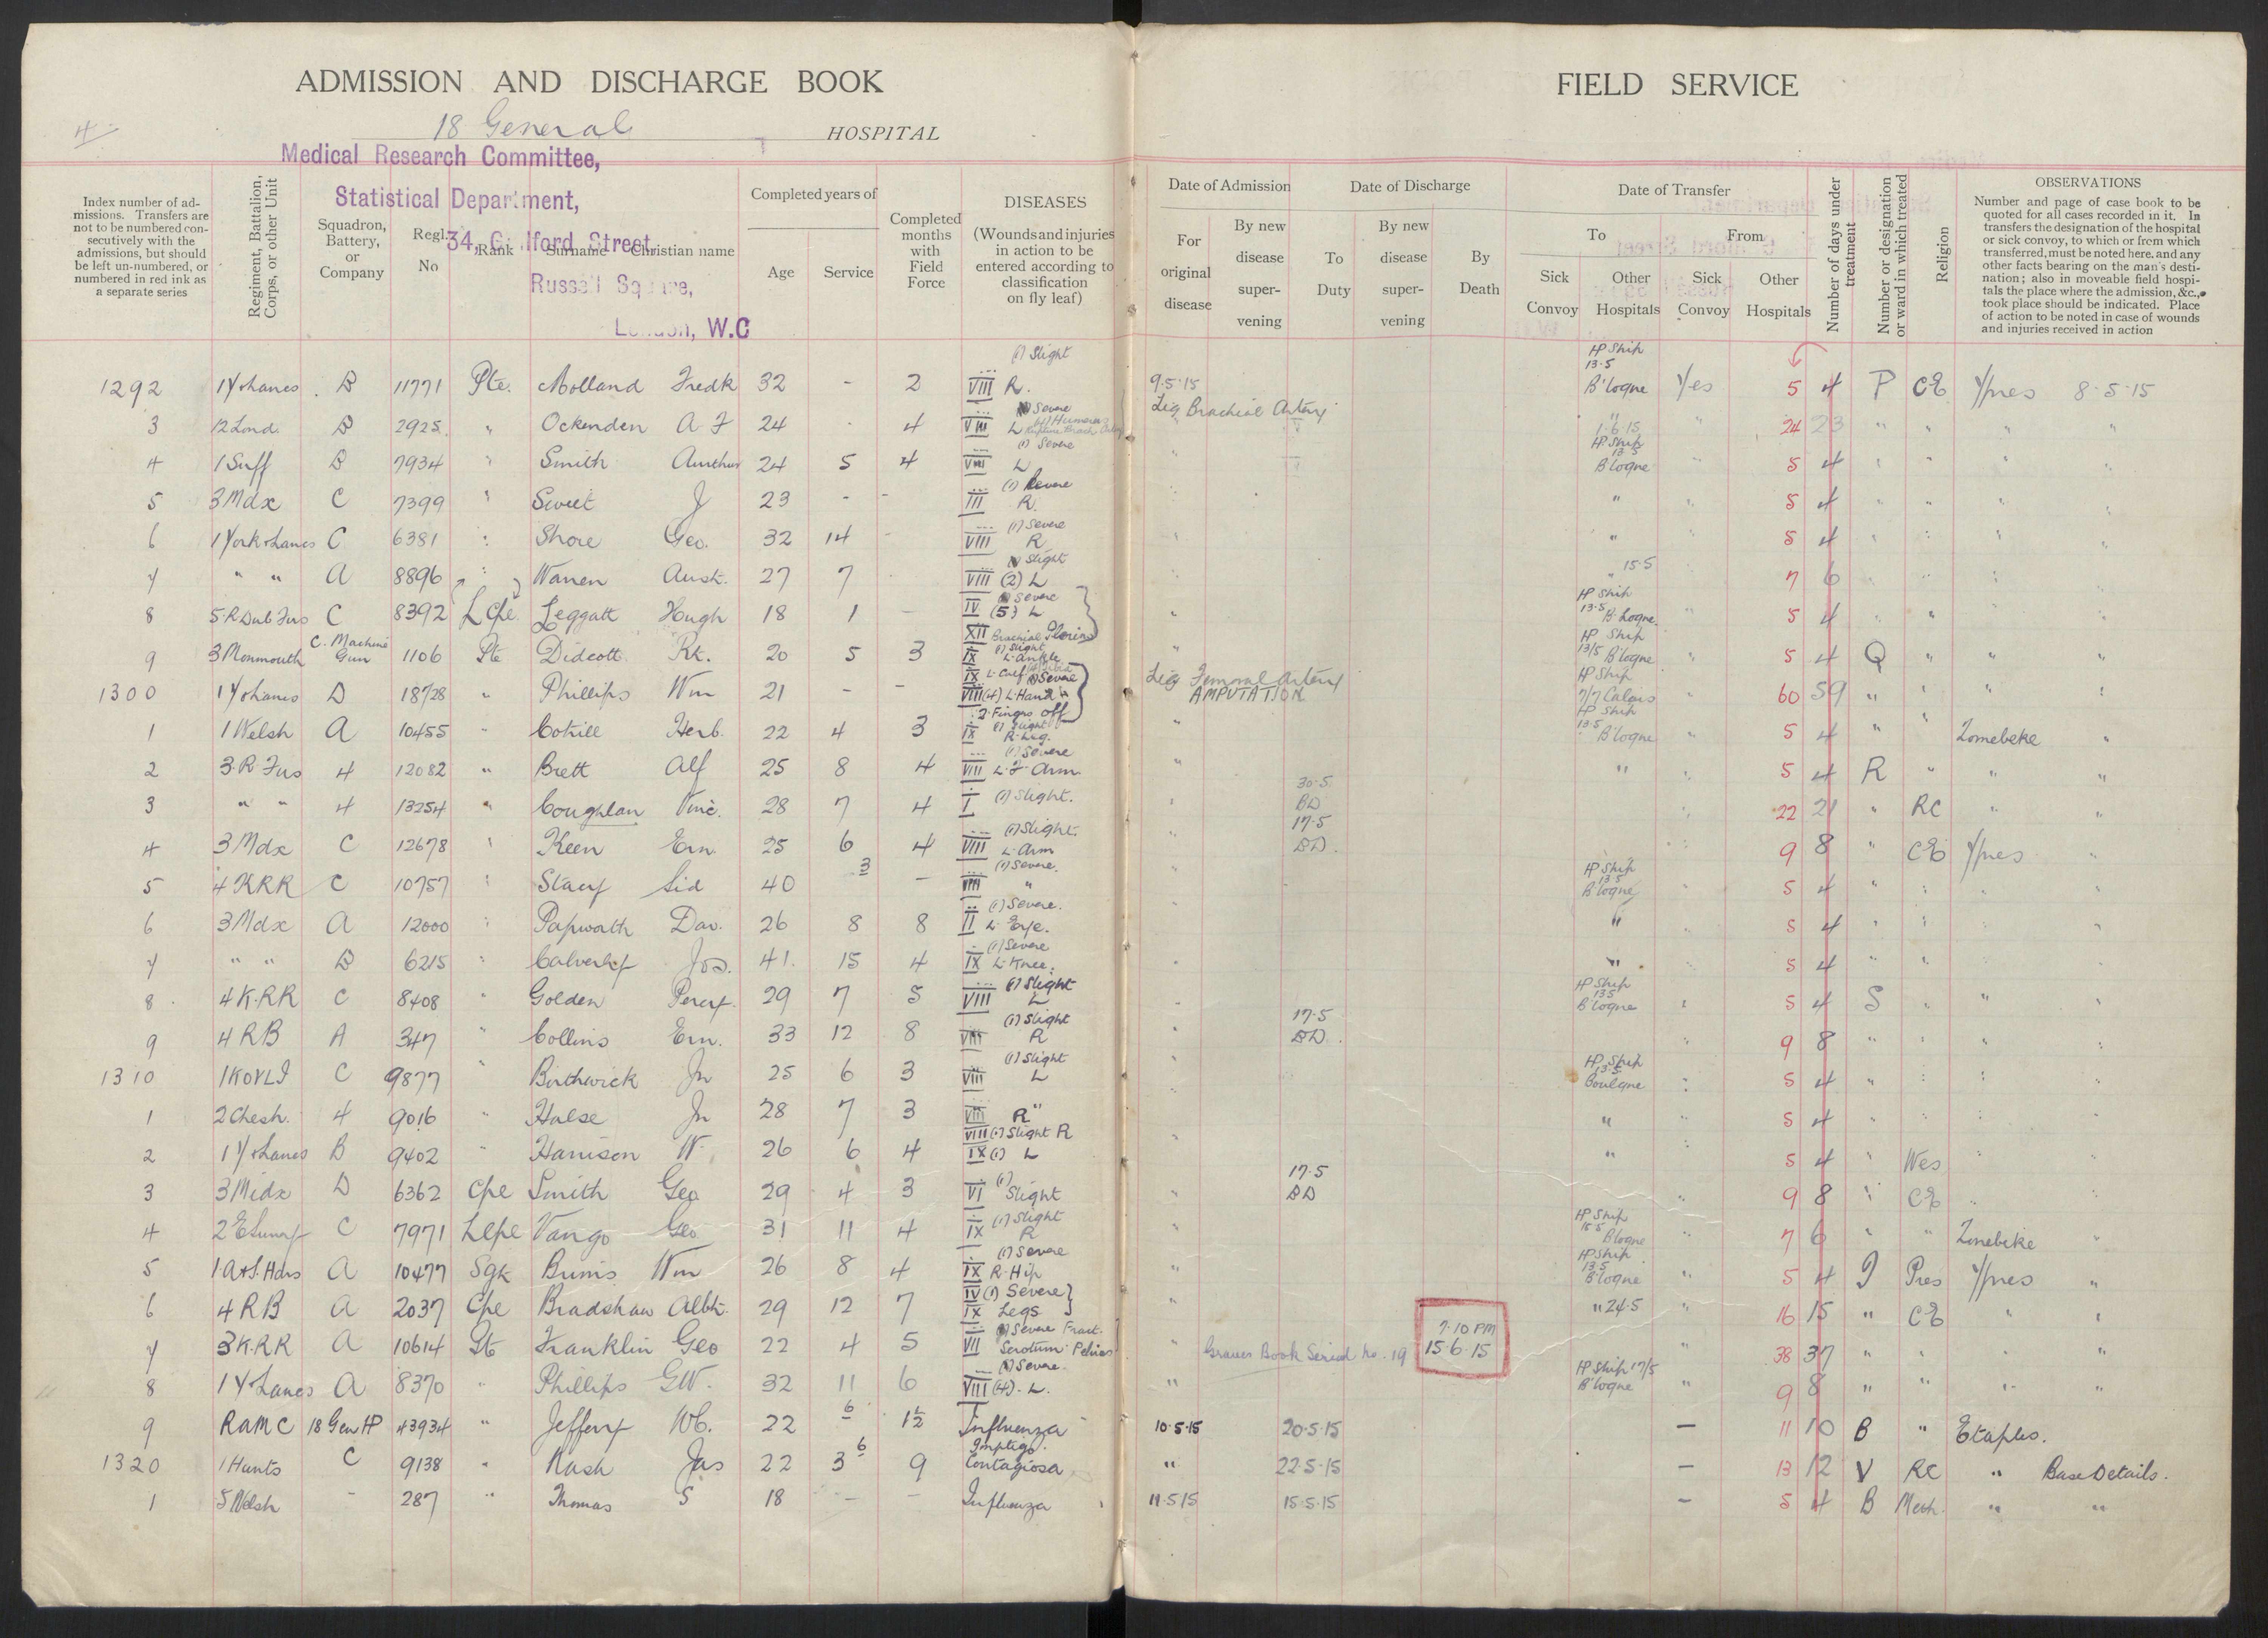 ADMISSION AND DISCHARGE BOOK
FIELD SERVICE
4
18 General HOSPITAL
Medical Research Committee,
Statistical Department,
34, Guilford Street,
Russell Square,
London, W.C
Index number of admissions. Transfers are not to be numbered consecutively with the admissions, but should be left un-numbered, or numbered in red ink as a separate series
Regiment, Battalion, Corps, or other Unit
Squadron, Battery, or Company
Regl. No
Rank
Surname
Christian name
Completed years of
Age
Service
Completed months with Field Force
DISEASES
(Wounds and injuries in action to be entered according to classification on fly leaf)
Date of Admission
For original disease
By new disease supervening
Date of Discharge
To Duty
By new disease supervening
By Death
Date of Transfer
To
Sick Convoy
Other Hospitals
From
Sick Convoy
Other Hospitals
Number of days under treatment
Number or designation or ward in which treated
Religion
OBSERVATIONS
Number and page of case book to be quoted for all cases recorded in it. In transfers the designation of the hospital or sick convoy, to which or from which transferred, must be noted here, and any other facts bearing on the man's destination; also in moveable field hospitals the place where the admission, &c., took place should be indicated. Place of action to be noted in case of wounds and injuries received in action
1292 1 Y & Lancs B 11771 Pte. Molland Fredk 32 - 2 VIII R. (1) Slight 9.5.15 HP Ship 13.5 B'logne Yes 5 4 P CE Ypres 8.5.15
3 12 Lond. B 2925 " Ockenden A F 24 - 4 VIII L Severe Lig Brachial Artery 1.6.15 " 24 23 " " " "
4 1 Suff B 7934 " Smith Aurthur 24 5 4 VIII L (1) Severe " HP Ship 13.5 B'logne 5 4 " " " "
5 3 Mdx C 7399 " Sweet J 23 - - III R. (1) Severe " " 5 4 " " " "
6 1 York & Lancs C 6381 " Shore Geo. 32 14 - VIII R (1) Severe " " 5 4 " " " "
7 " " A 8896 " Warren Aust. 27 7 VIII (2) L Slight " " 15.5 7 6 " " " "
8 5 R Dub Fus C 8392 L Cpl. Leggatt Hugh 18 1 - IV (5) L Severe XII Brachial " HP Ship 13.5 B'logne 5 4 " " " "
9 3 Monmouth C. Machine Gun 1106 Pte Didcott Rt. 20 5 3 IX (1) Slight L. ankle " HP Ship 13/5 B'logne " 5 4 Q " " "
1300 1 Y & Lancs D 18728 " Phillips Wm 21 - - IX L. Calf Severe VIII (4) L. Hand 2 Fingers off Lig Femoral Artery AMPUTATION HP Ship 7/7 Calais " 60 59 " " " "
1 1 Welsh A 10455 " Cotrill Herb. 22 4 3 IX (1) Slight R. Leg. " HP Ship 13.5 B'logne " 5 4 " " Zonebeke "
2 3 R. Fus 4 12082 " Brett Alf 25 8 4 VIII (1) Severe L. F. Arm. " " " 5 4 R " " "
3 " " 4 13254 " Coughlan Vinc. 28 7 4 I (1) Slight. " 30.5 BD " 22 21 " RC " "
4 3 Mdx C 12678 " Keen Ern. 25 6 4 VIII (1) Slight. L. Arm " 17.5 BD. " 9 8 " CE Ypres "
5 4 KRR C 10757 " Stacy Sid 40 3 - VIII (1) Severe. " " HP Ship 13.5 B'logne " 5 4 " " " "
6 3 Mdx A 12000 " Papworth Dav. 26 8 8 II (1) Severe. L. Eye. " " " 5 4 " " " "
7 " " B 6215 " Calverley Jos. 41. 15 4 IX (1) Severe L. Knee. " " " 5 4 " " " "
8 4 K.RR C 8408 " Golden Percy. 29 7 5 VIII (1) Slight L " HP Ship 13.5 B'logne " 5 4 S " " "
9 4 RB A 347 " Collins Ern. 33 12 8 VIII (1) Slight R " 17.5 BD. " 9 8 " " " "
1310 1 KOYLI C 9877 " Birthwick Jn 25 6 3 VIII (1) Slight L " HP Ship 13.5 Boulgne " 5 4 " " " "
1 2 Chesh. 4 9016 " Halse Jn 28 7 3 VIII R " " " " 5 4 " " " "
2 1 Y & Lancs B 9402 " Harrison W. 26 6 4 VIII (1) Slight R IX (1) L " " " 5 4 " Wes " "
3 3 Midx D 6362 Cpl Smith Geo 29 4 3 VI (1) Slight " 17.5 BD " 9 8 " CE " "
4 2 E Surry C 7971 L Cpl Vango Geo 31 11 4 IX (1) Slight R " HP Ship 15.5 B'logne " 7 6 " " Zonebeke "
5 1 A & S. Hdrs A 10477 Sgt Burns Wm 26 8 4 IX (1) Severe R. Hip " HP Ship 13.5 B'logne " 5 4 J Pres Ypres "
6 4 RB A 2037 Cpl Bradshaw Albt. 29 12 7 IV (1) Severe IX Legs " " 24.5 " 16 15 " CE " "
7 3 K.RR A 10614 Pte Franklin Geo 22 4 5 VII (1) Severe Fract. Scrotum Pelvis " Graves Book Serial No. 19 7.10 PM 15.6.15 " 38 37 " " " "
8 1 Y Lancs A 8370 " Phillips GW. 32 11 6 VIII (4). L. Severe. " HP Ship 17/5 B'logne " 9 8 " " " "
9 RAMC 18 Gen HP 43934 " Jeffery Wb. 22 6 1½ Influenza 10.5.15 20.5.15 - 11 10 B " Etaples.
1320 1 Hunts C 9138 " Nash Jas 22 3 6 9 Imptigo Contagiosa " 22.5.15 - 13 12 V RC " Base Details.
1 5 Welsh - 287 " Thomas S 18 - - Influenza 11.5.15 15.5.15 - 5 4 B Meth. " "